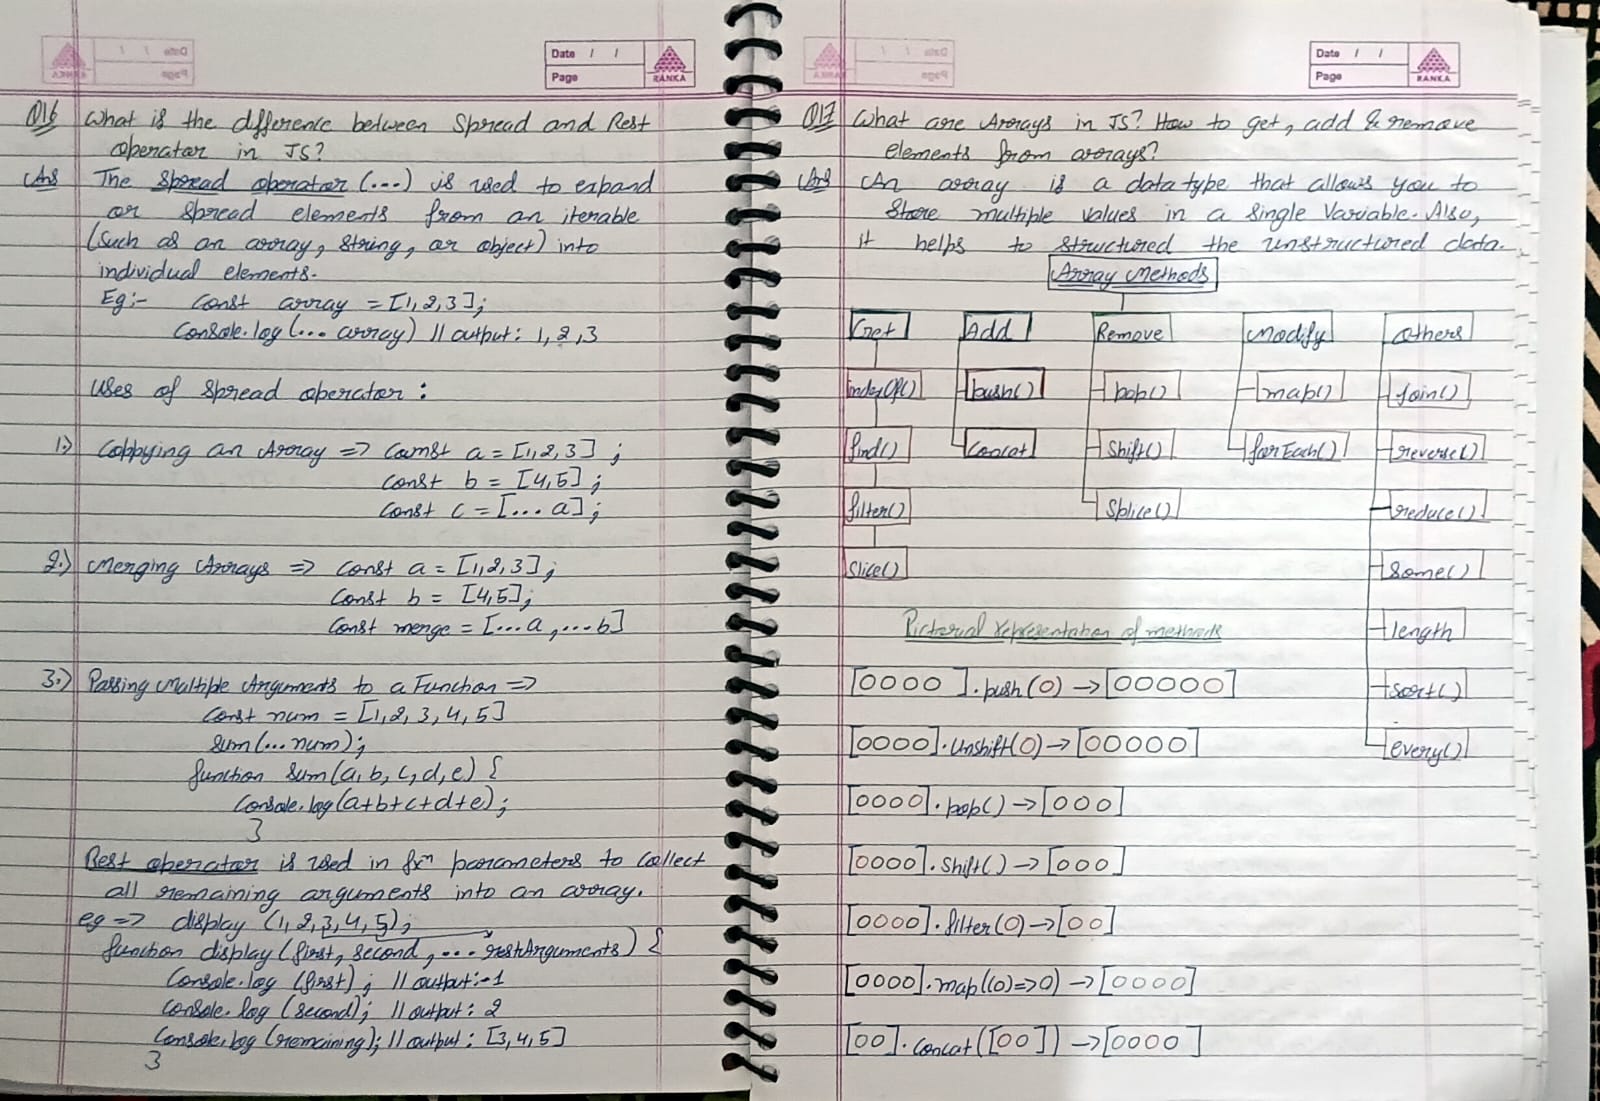 Date / /
Page
RANKA
Q16 What is the difference between Spread and Rest
operator in JS?
Ans The Spread operator (...) is used to expand
or spread elements from an iterable
(Such as an array, string, or object) into
individual elements.
Eg:- Const array = [1,2,3];
Console.log(... array) // output: 1, 2, 3
Uses of Spread operator :
1.) Coppying an Array => Const a = [1,2,3] ;
const b = [4,5] ;
Const c = [... a];
2.) Merging Arrays => const a = [1,2,3];
Const b = [4,5];
Const merge = [...a ,...b]
3.) Passing Multiple Arguments to a Function =>
Const num = [1,2, 3, 4, 5]
sum(...num);
function sum(a, b, c, d, e) {
Console.log(a+b+c+d+e);
}
Rest operator is used in fxn parameters to Collect
all remaining arguments into an array.
eg => display (1, 2, 3, 4, 5);
function display (first, second, ... restArguments) {
Console.log (first) ; // output:-1
Console.log (second); // output: 2
Console.log (remaining); // output: [3, 4, 5]
}
Date / /
Page
RANKA
Q17 What are Arrays in JS? How to get, add & remove
elements from arrays?
Ans An array is a data type that allows you to
Store multiple values in a single Variable. Also,
it helps to structured the unstructured data.
Array Methods
Get Add Remove Modify Others
indexOf() push() pop() map() join()
find() Concat Shift() forEach() reverse()
filter() Splice() reduce()
Slice() Some()
Pictorial representation of methods length
[0000].push(0) -> [00000] sort()
[0000].Unshift(0) -> [00000] every()
[0000].pop() -> [000]
[0000].Shift() -> [000]
[0000].filter(0) -> [00]
[0000].map((0)=>0) -> [0000]
[00].Concat([00]) -> [0000]